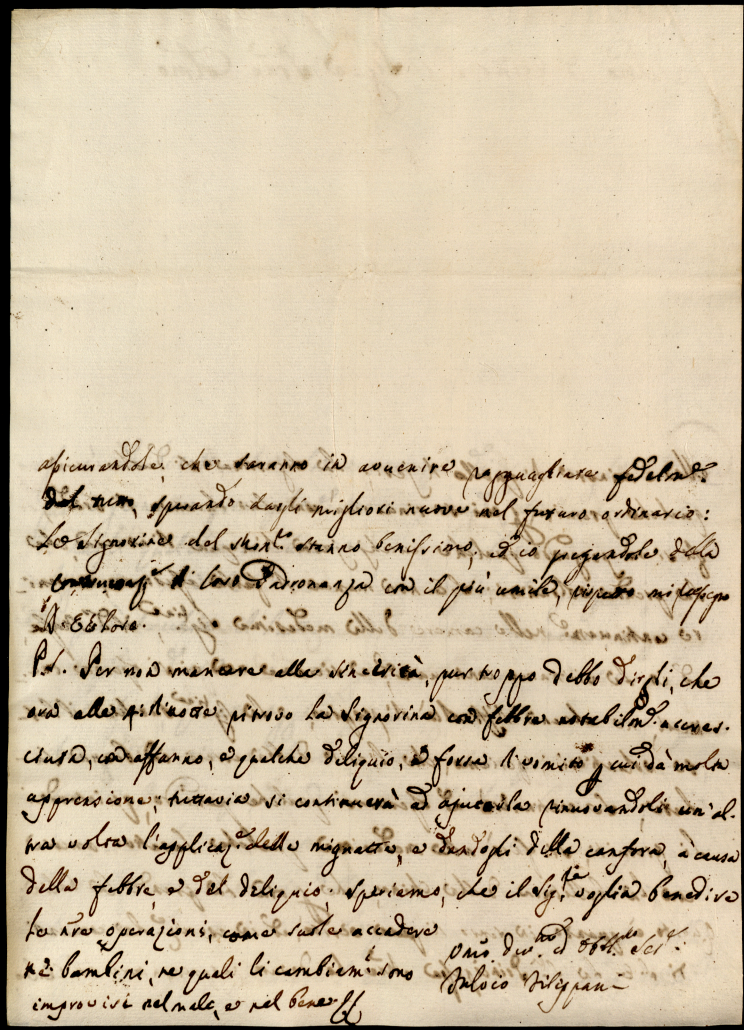 assicurandole, che saranno in avvenire ragguagliate fedelm.e
del tutto, sperando dargli migliori nuove nel futuro ordinario:
Le Signorine del stanno benissimo, ed io pregandole della
di loro Padronanza con il più umile rispetto mi rassegno
P.S. Per non mancare alla sincerità, pur troppo debbo dirgli, che
ora alle notte ritrovo la Signorina con febbre notabilm.e accres-
ciuta, con affanno, e qualche deliquio, e forza di vomito p cui dà molta
apprensione; tuttavia si continuerà ad ajutarla rinuovandoli un'al-
tra volta l'applicaz.e delle mignatte, e dandogli della canfora, à causa
della febbre, e del deliquio; speriamo, che il Sig.re voglia benedire
le nr̃e operazioni, come suole accadere
ne bambini, ne quali li cambiam.ti sono
improvisi nel male, e nel bene
Dev.mo ed Obb.mo Ser.e